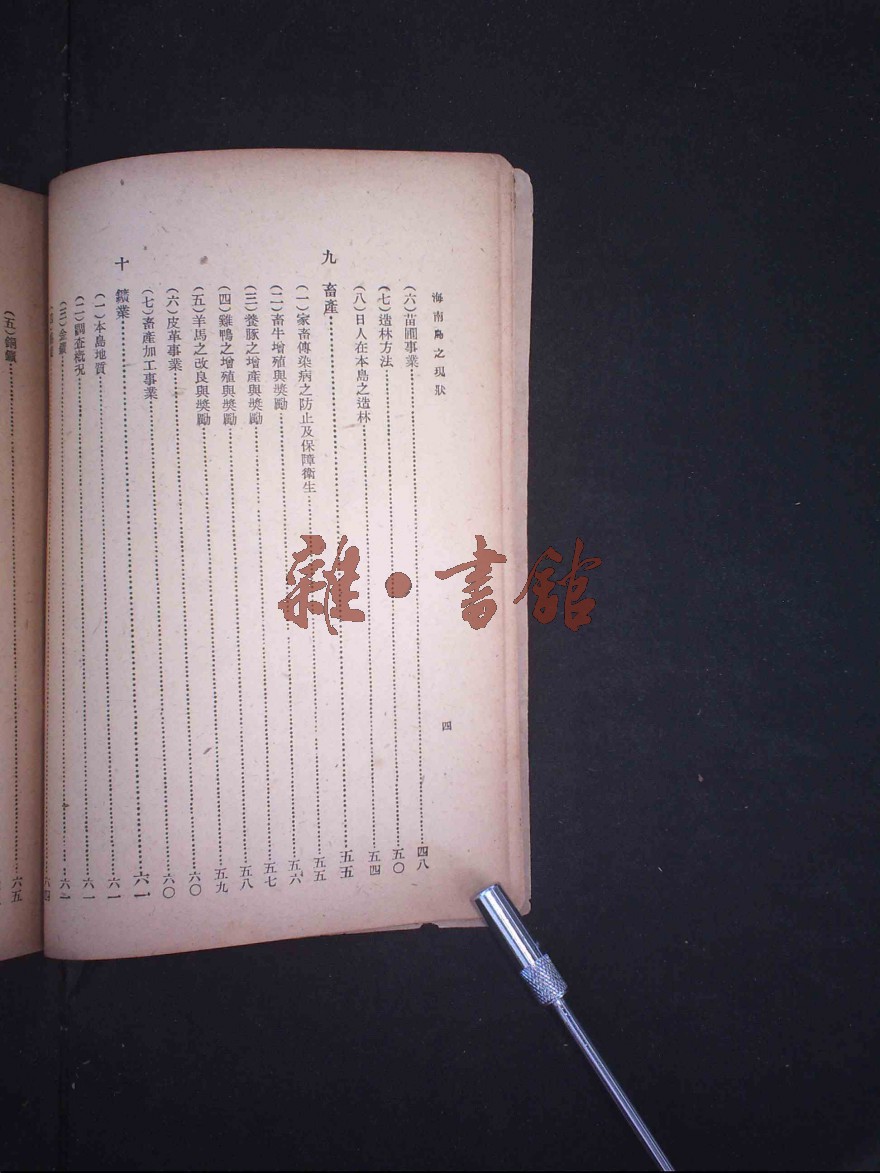 海南島之現狀
四
(六)苗圃事業……四八
(七)造林方法……五〇
(八)日人在本島之造林……五四
九 畜產……五五
(一)家畜傳染病之防止及保障衞生……五五
(二)畜牛增殖與獎勵……五六
(三)養豚之增產與獎勵……五七
(四)雞鴨之增殖與獎勵……五八
(五)羊馬之改良與獎勵……五九
(六)皮革事業……六〇
(七)畜產加工事業……六〇
十 鑛業……六一
(一)本島地質……六一
(二)調查概況……六一
(三)金鑛……六二
(五)錫鑛……六五
雜·書館